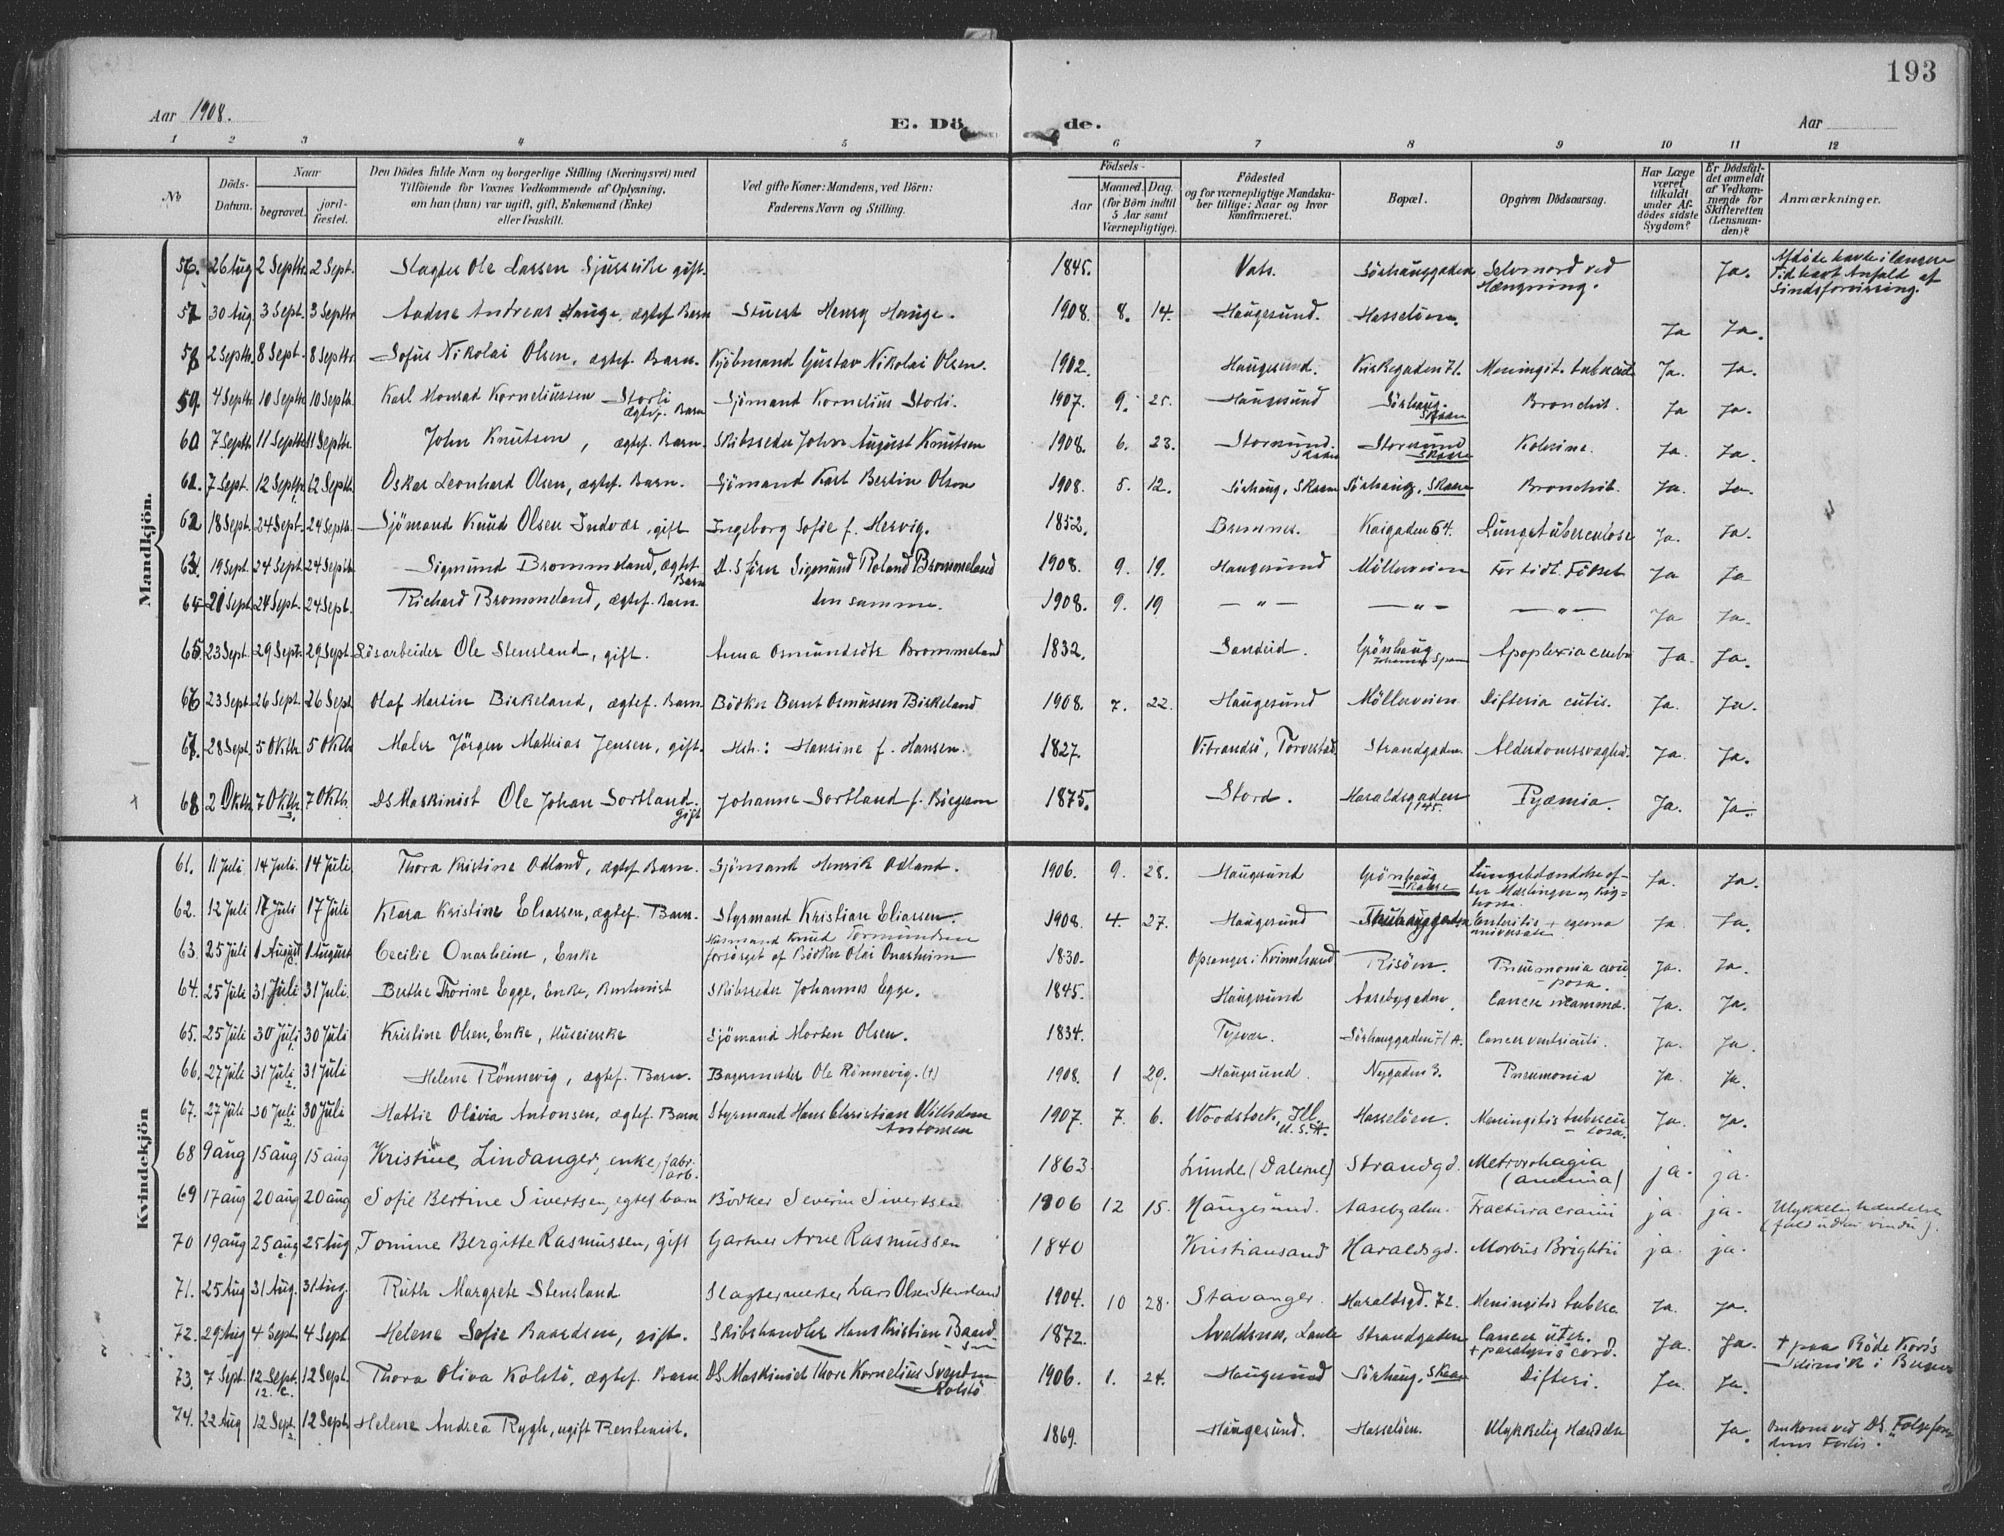 193
Aar 1908.
E. Dö de.
Aar
1 2 3 4 5 6 7 8 9 10 11 12
No
Döds-Datum.
Naar
begravet.
jordfæstet.
Den Dödes fulde Navn og borgerlige Stilling (Næringsvei) med
Tilföiende for Voxnes Vedkommende af Oplysning,
om han (hun) var ugift, gift, Enkemand (Enke)
eller fraskilt.
Ved gifte Koner: Mandens, ved Börn:
Faderens Navn og Stilling.
Födsels-
Aar
Maaned. Dag.
(for Börn indtil
5 Aar samt
Værnepligtige).
Födested
og for værnepligtige Mandskaber tillige: Naar og hvor
konfirmeret.
Bopæl.
Opgiven Dödsaarsag.
Har Læge
været
tilkaldt
under Afdödes sidste
Sygdom?
Er Dödsfaldet anmeldt
af Vedkommende for
Skifteretten
(Lensmanden)?
Anmærkninger.
Mandkjön.
56. 26 Aug 2 Septbr. 2 Sept. Slagter Ole Larsen gift. 1845. Vats. Sörhauggaden Selvmord ved Hængning. Ja. Afdöde havde i længere Tid havt Anfald af Sindsforvirring.
57 30 Aug. 3 Sept. 3 Septbr Andreas Hauge, ægtef. Barn Stuert Henry Hauge. 1908. 8. 14. Haugesund. Hasselöen. Ja Ja.
58 2 Septbr. 8 Sept. 8 Septbr. Sofus Nikolai Olsen, ægtef. Barn. Kjöbmand Gustav Nikolai Olsen. 1902. Haugesund. Kirkegaden 71. Meningit. tubercul. Ja. Ja.
59. 4 Septbr 10 Septbr 10 Septbr. Karl Konrad Korneliussen Storli ægtef. Barn Sjömand Kornelius Storli. 1907. 9. 25. Haugesund Sörhaug. Skaare Bronchit. Ja Ja.
60 7 Septbr. 11 Septbr 11 Septbr. John Knutsen, ægtef. Barn. Skibsreder John August Knutsen 1908. 6. 23. Storesund. Skaare Storesund Skaare Kolerine. Ja. Ja.
61. 7 Sept. 12 Septbr. 12 Septbr. Oskar Leonhard Olsen, ægtef. Barn. Sjömand Karl Bertin Olsen 1908. 5. 12. Sörhaug, Skaare Sörhaug, Skaare Bronchit. Ja. Ja.
62 18 Sept. 24 Sept. 24 Septbr. Sjömand Knud Olsen Indvær, gift Ingeborg Sofie f. Hervig. 1852. Bremnes. Kaigaden 64. Lungetuberculose Ja. Ja.
63. 19 Sept. 24 Sept. 24 Septbr Sigmund Brommeland, ægtef. Barn D.S förer Sigmund Roland Brommeland 1908. 9. 19. Haugesund Möllerveien For tidl. Födsel Ja Ja
64 21 Sept. 24 Sept. 24 Sept. Richard Brommeland, ægtef. Barn. den samme. 1908. 9. 19 — " — — " — — " — Ja Ja.
65. 23 Sept. 29 Sept. 29 Sept. Lösarbeider Ole Stensland, gift. Anna Osmundsdtr Brommeland 1832. Sandeid. Grönhaug Apoplexia cerebri Ja. Ja.
66 23 Sept. 26 Sept. 26 Sept. Olaf Martin Birkeland, ægtef. Barn. Bödker Bernt Osmussen Birkeland 1908. 7. 22. Haugesund Möllerveien. Difteria cutis. Ja. Ja.
67. 28 Sept. 5 Oktbr. 5 Oktbr. Maler Jörgen Mathias Jensen, gift. Hst.: Hansine f. Hansen. 1827. Vibrandsö, Torvestad. Strandgaden. Alderdomssvaghed. Ja. Ja.
68 2 Oktbr. 7 Oktbr. 7 Oktbr. DS Maskinist Ole Johan Sortland. gift Johanne Sortland f. 1875. Stord. Haraldsgaden 145. Pyæmia. Ja. Ja.
Kvindekjön
61. 11 Juli 14 Juli. 14 Juli. Thora Kristine Odland, ægtef. Barn. Sjömand Henrik Odland. 1906. 9. 28. Haugesund Grönhaug Skaare Lungebetændelse efter Mæslinger og Kighoste. Ja. Ja.
62. 12 Juli 17 Juli 17 Juli Klara Kristine Eliassen, ægtef. Barn. Styrmand Kristian Eliassen. 1908. 4. 27. Haugesund Enteritis + eczema universale Ja Ja.
63. 25 Juli 1 August 1 August Cecilie Onarheim, Enke Husmand Knud Tormundsen forsörget af Bödker Olai Onarheim 1830. Opsanger i Kvinnherad Risöen. Pneumonia crouposa. Ja. Ja.
64. 25 Juli 31 Juli 31 Juli. Berthe Thorine Egge, Enke, Rentenist Skibsreder Johannes Egge. 1845. Haugesund Aasebygaden. Cancer mammæ. Ja. Ja.
65. 25 Juli 30 Juli 30 Juli Kristine Olsen, Enke, Huseierske Sjömand Morten Olsen. 1834. Tysvær. Sörhauggaden 71 A. Cancer ventriculi. Ja. Ja.
66. 27 Juli 31 Juli 31 Juli Helene Rönnevig, ægtef. Barn. Bagermester Ole Rönnevig. (†) 1908. 1 29. Haugesund. Nygaden 3. Pneumonia Ja. Ja.
67. 27 Juli 30 Juli 30 Juli Hattie Olivia Antonsen, ægtef. Barn Styrmand Hans Christian Wilhelm Antonsen 1907. 7. 6. Woodstock, Ill. U.S.A. Hasselöen. Meningitis tuberculosa. Ja. Ja.
68 9 aug 15 aug 15 aug Kristine Lindanger, enke, fabr. arb. 1863. Lunde (Dalerne) Strandgd. Metrorrhagia (anæmia) ja. ja.
69 17 aug 20 aug 20 aug Sofie Bertine Sivertsen, egtef barn Bödker Severin Sivertsen 1906 12 15. Haugesund. Aasebygaden. Fractura cranii ja. ja. Ulykkelig hændelse (fald ud av vindu).
70 19 aug 25 aug 25 Aug Tomine Bergitte Rasmussen, gift Gartner Arne Rasmussen 1840 Kristiansand Haraldsgd. Morbus Brightii ja. ja.
71. 25 Aug 31 Aug. 31 Aug. Ruth Margrete Stensland Slagtermester Lars Olsen Stensland 1904. 10 28. Stavanger. Haraldsgd. 72. Meningitis tuberc. Ja. Ja.
72. 29 Aug 4 Sept. 4 Sept. Helene Sofie Baardsen, gift. Skibshandler Hans Kristian Baardsen 1872. Avaldsnes, Strandgaden Cancer uter. + paralysis cord. Ja. Ja. + paa Röde Kors Klinik i Bergen
73. 7 Sept. 12 Sept. 12 Sept. Thora Oliva Kolstö, ægtef. Barn DS. Maskinist Thore Kornelius Svendsen Kolstö 1906. 1. 24. Haugesund Sörhaug, Skaare Difteri. Ja. Ja.
74. 22 Aug 12 Sept. 12 Sept. Helene Andrea Rygh, ugift Rentenist. 1869. Haugesund. Hasselöen. Ulykkelig Hændelse Ja. Omkom ved DS. "Folgefondens Forlis."